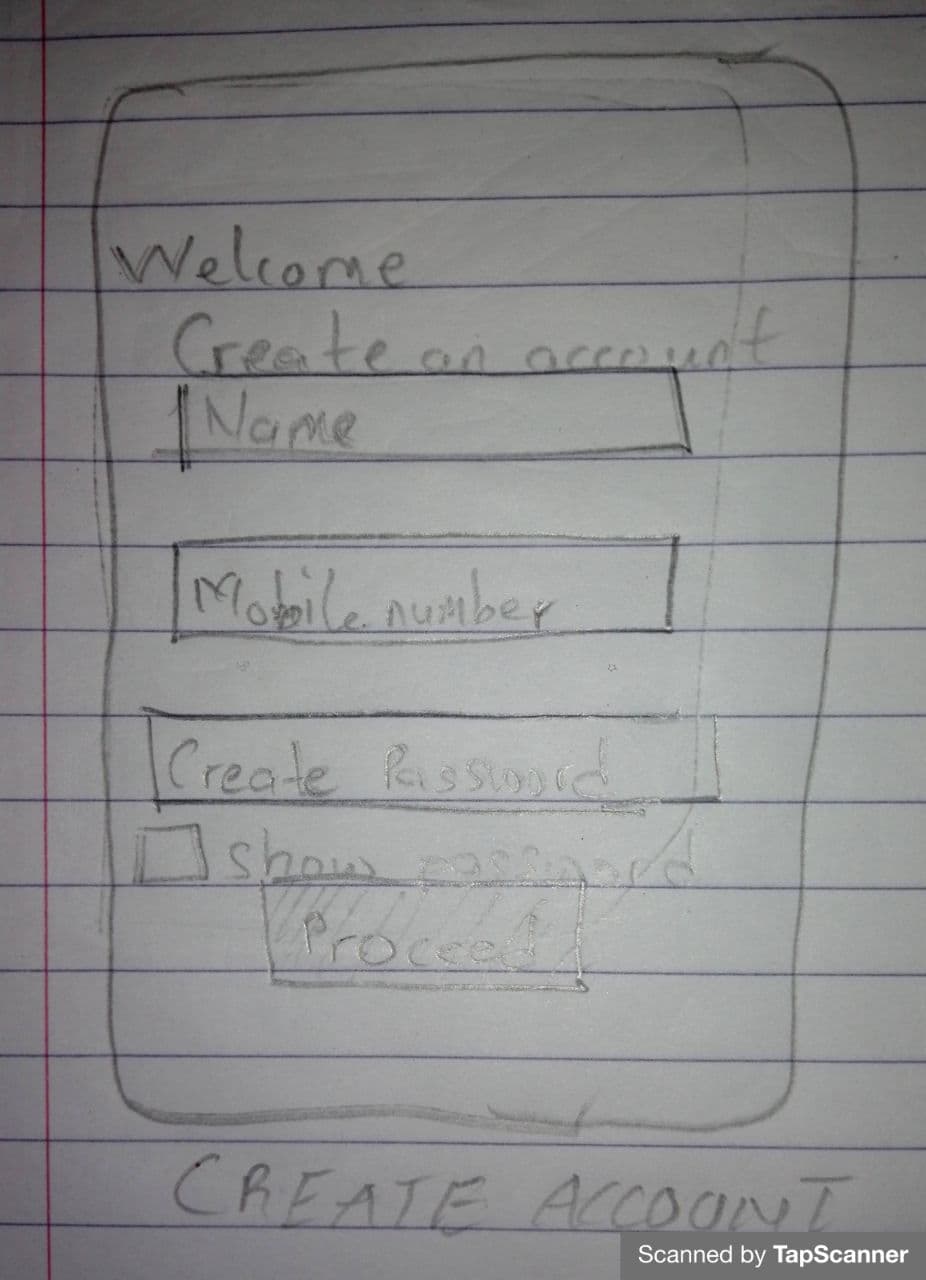 Welcome
Create an account
Name
Mobile number
Create Password
show password
Proceed
CREATE ACCOUNT
Scanned by TapScanner